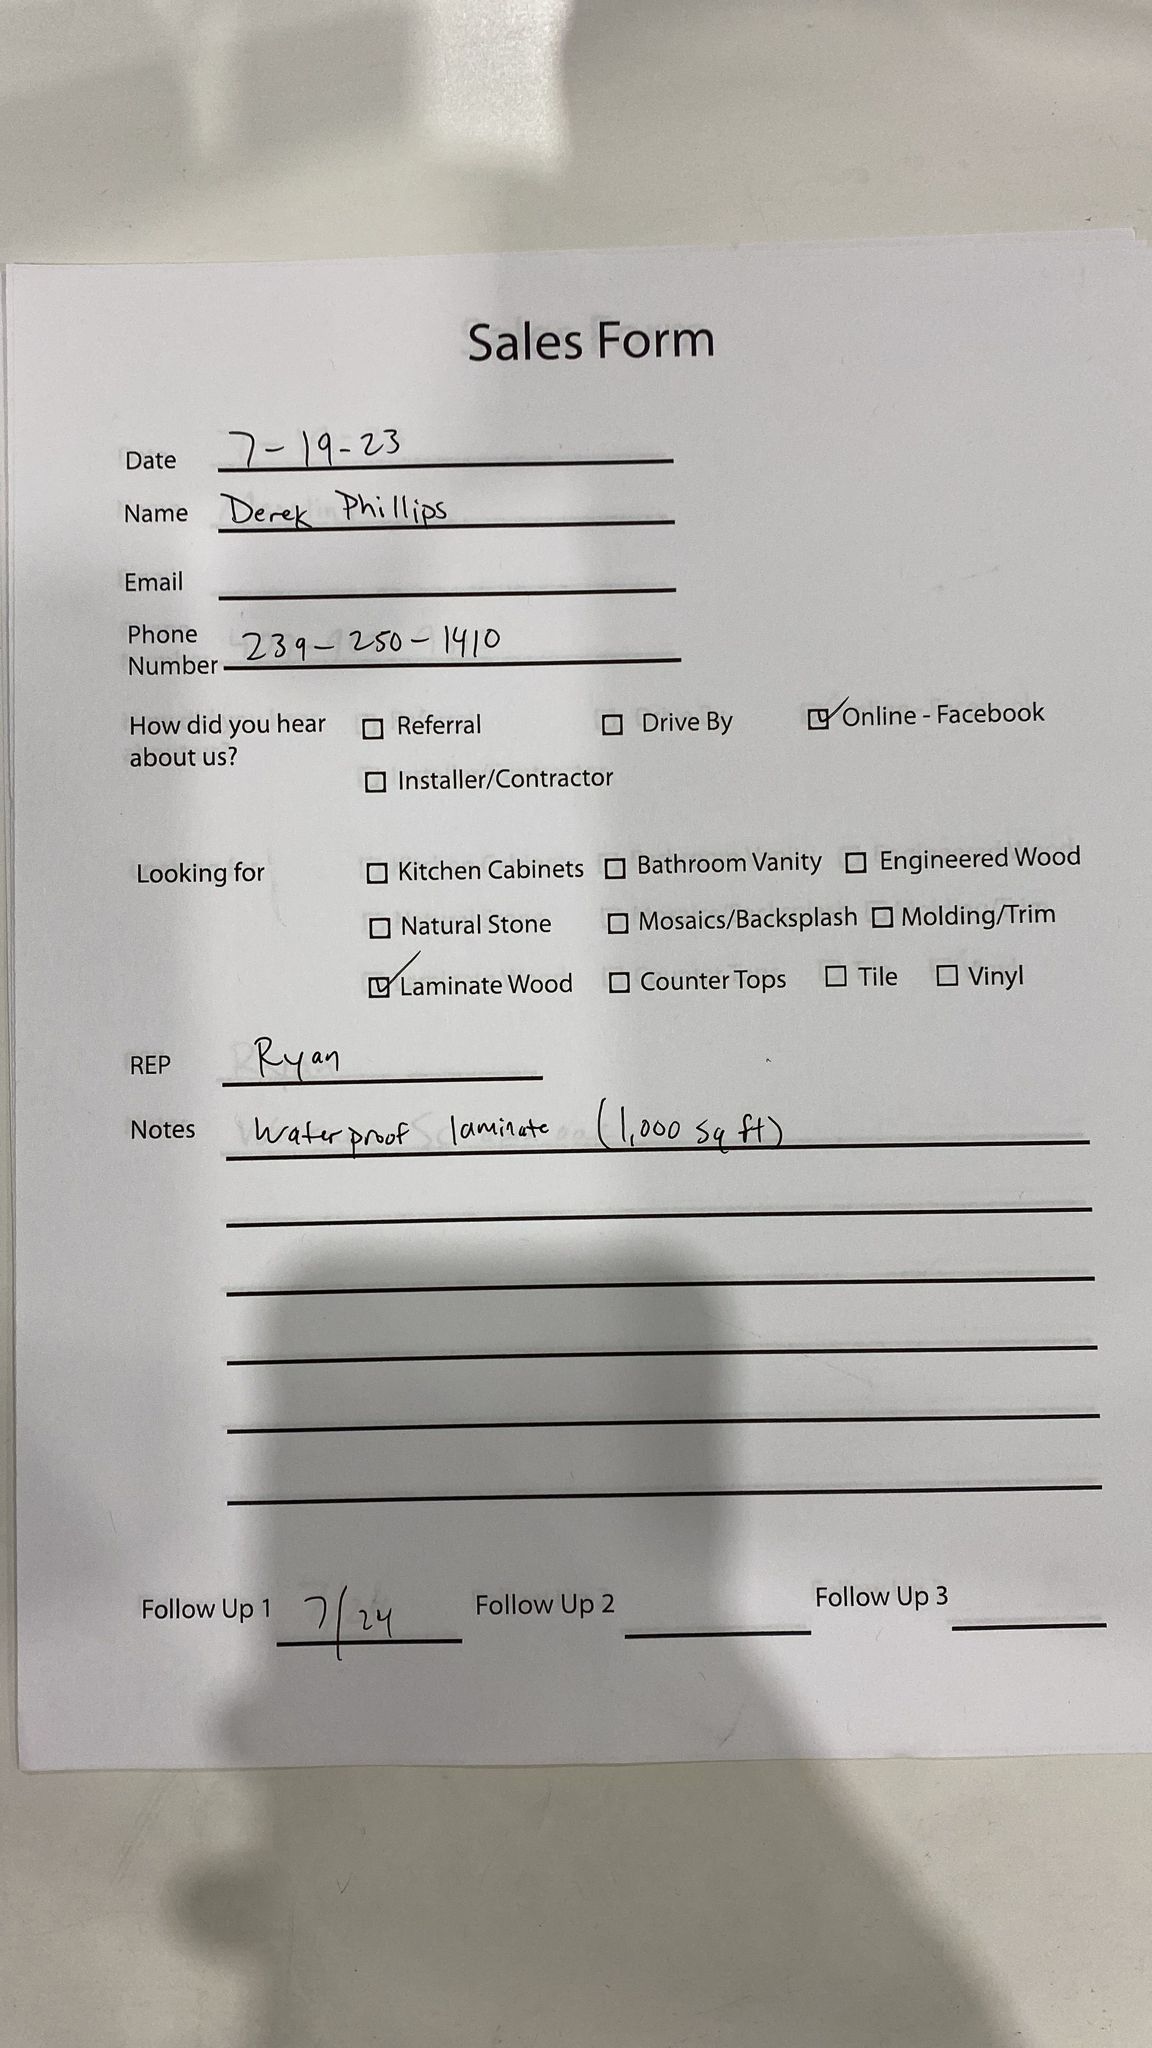 Sales Form
Date 7-19-23
Name Derek Phillips
Email
Phone
Number 239-250-1410
How did you hear ☐ Referral ☐ Drive By ☑ Online - Facebook
about us?
☐ Installer/Contractor
Looking for ☐ Kitchen Cabinets ☐ Bathroom Vanity ☐ Engineered Wood
☐ Natural Stone ☐ Mosaics/Backsplash ☐ Molding/Trim
☑ Laminate Wood ☐ Counter Tops ☐ Tile ☐ Vinyl
REP Ryan
Notes Waterproof laminate (1,000 sq ft)
Follow Up 1 7/24 Follow Up 2 Follow Up 3